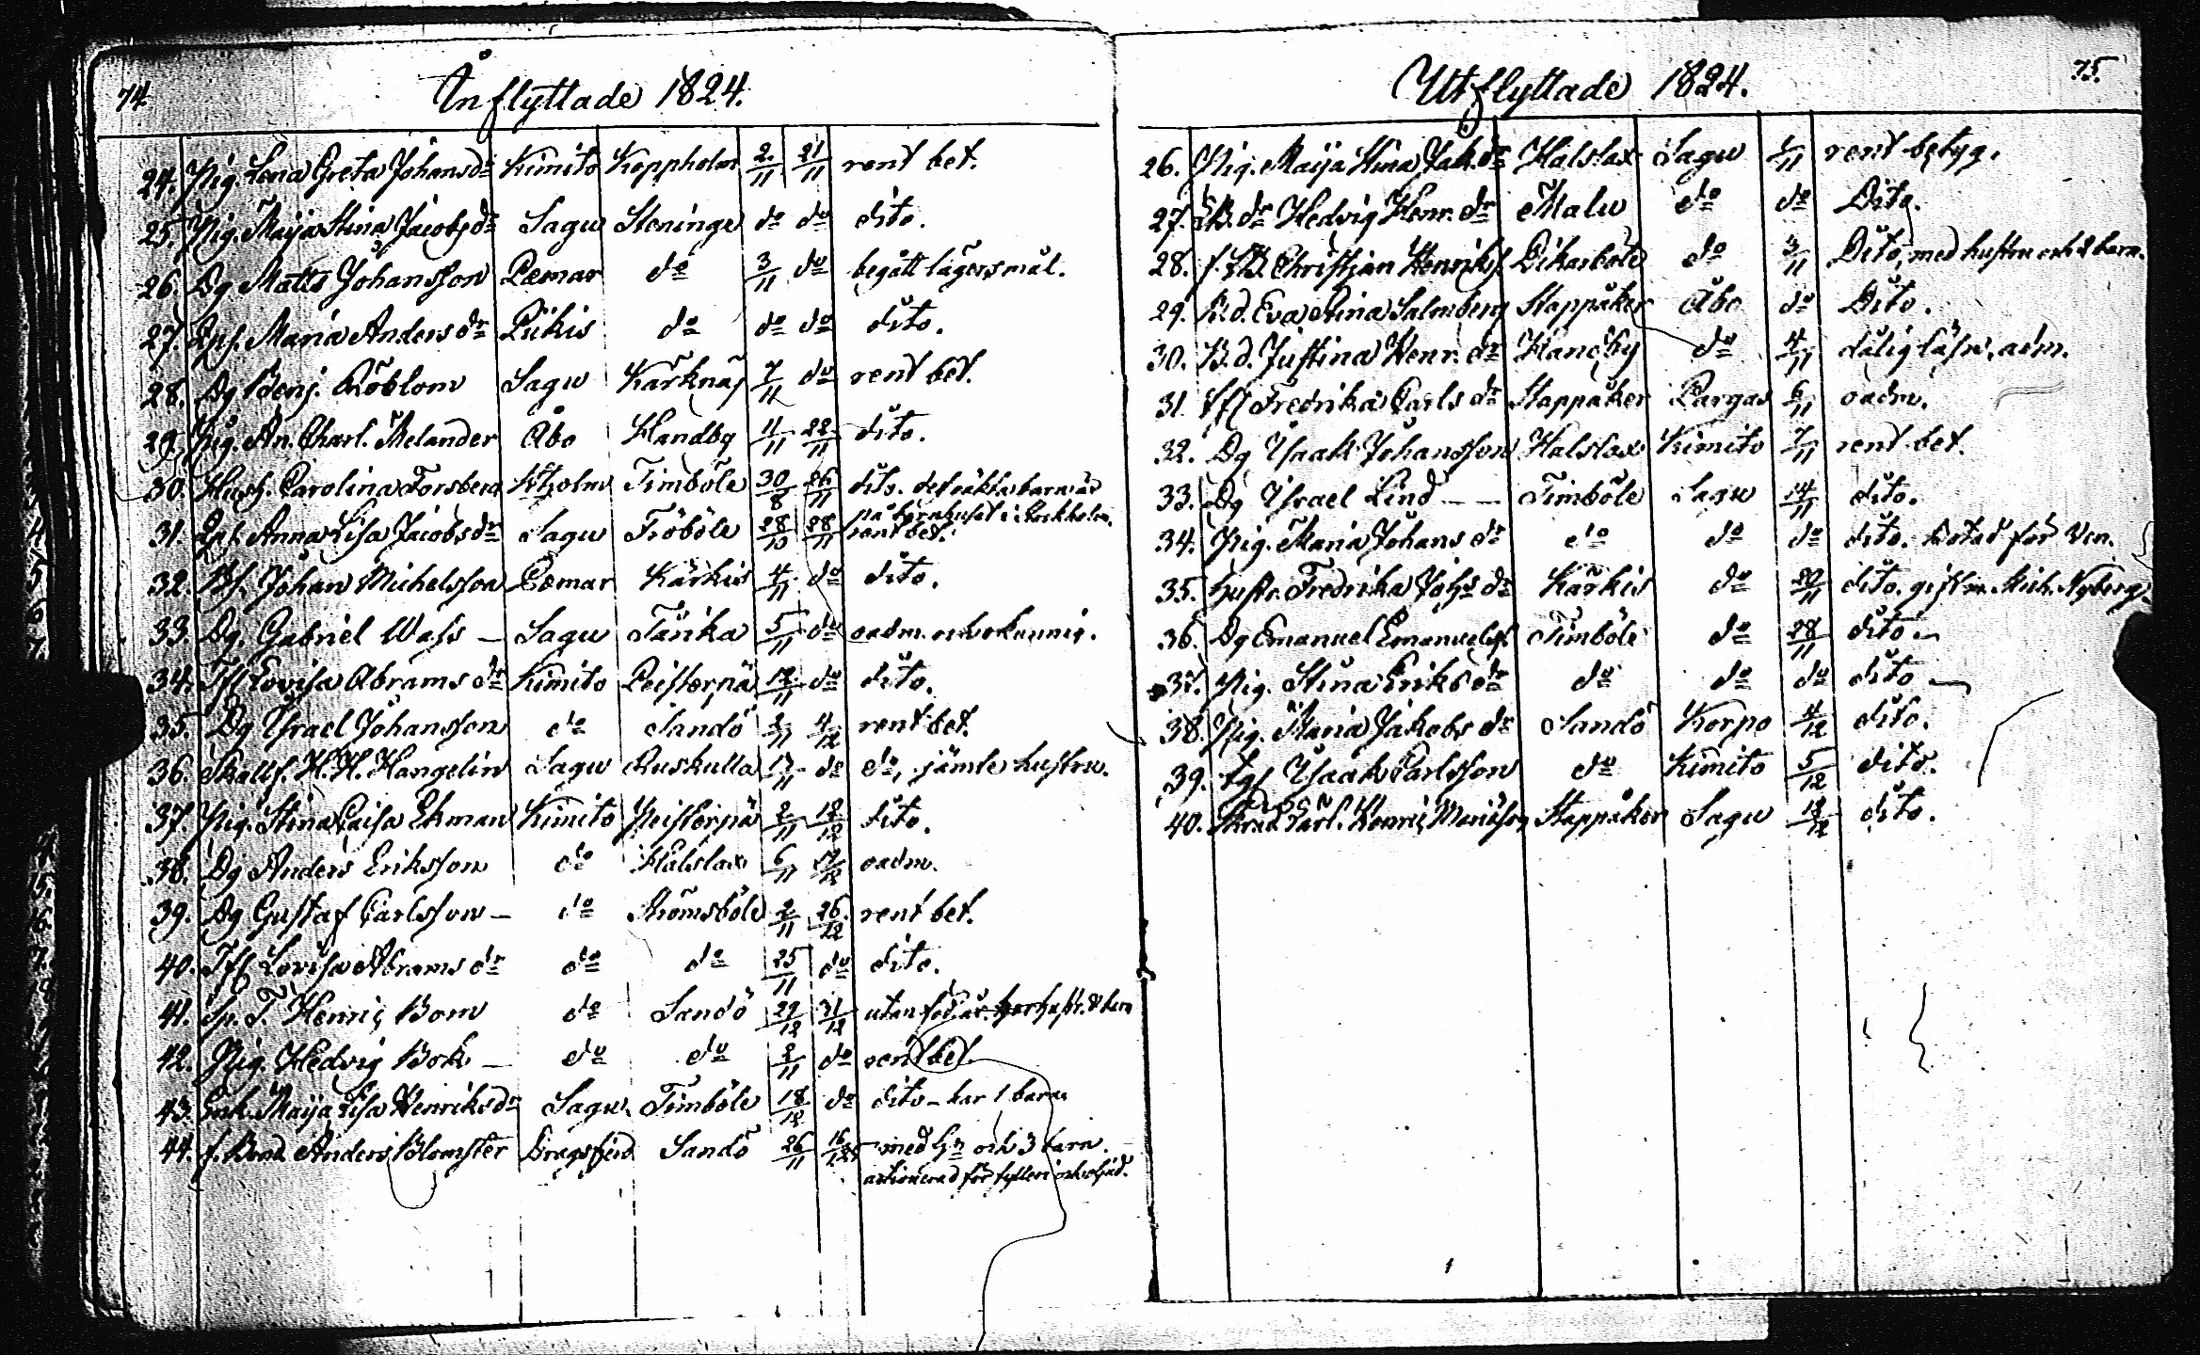 74.
Inflyttade 1824.
24. Pig. Lena Greta Johansdr Kimito Koppholm 2/11 21/11 rent bet.
25. Pig. Maija Stina Jacobsdr Sagu Steninge do do dito.
26. Dg Matts Johansson Pemar do 3/11 do begått lägersmål.
27. Maria Andersdr Piikis do do do dito.
28. Dg Benj. Röblom Sagu Kärknäs 7/11 do rent bet.
29. Pig. An. Charl. Melander Åbo Handby 11/11 22/11 dito.
30. Hush. Carolina Forsberg Kholm Timböle 30/8 26/11 dito. det oäkta barn är
på barnhuset i Stockholm.
31. Anna Lisa Jacobsdr Sagu Fröböle 28/10 28/11 rent bet.
32. Johan Michelsson Pemar Kärkis 4/11 do dito.
33. Dg. Gabriel Wass – Sagu Tänka 5/11 do oadm. och okunnig.
34. Lovisa Abramsdr Kimito Peisterpä 12/11 do dito.
35. Dg Israel Johansson do Sandö 2/11 4/12 rent bet.
36. Skallf. H. H. Hangelin Sagu Ruskulla 17/11 do do, jämte hustru.
37. Pig. Stina Caisa Ekman Kimito Peisterpä 2/11 12/12 dito.
38. Dg Anders Eriksson do Halslax 6/11 oadm.
39. Dg Gustaf Carlsson – do Strömsböle 2/11 26/12 rent bet.
40. Lovisa Abramsdr do do 25/11 do dito.
41. Sp. T. Henric Bom do Sandö 29/12 31/12 utan
42. Pig. Hedvig Bok – do do 2/11 do rent bet.
43. Enk. Maija Lisa Henriksdr Sagu Timböle 18/12 do dito – har 1 barn
44. f. Bond. Anders Blomster Dragsfjerd Sandö 26/11 med och 3 barn.
för fylleri och
75.
Utflyttade 1824.
26. Pig. Maija Stina Jak.dr Halslax Sagu 1/11 rent betyg.
27. B.dr Hedvig Henr.dr Malu do do Dito.
28. f. Christian Henriks. Dikarböle do 3/11 Dito, med hustru och 2 barn.
29. B.d. Eva Stina Salmberg Stappåker Åbo do Dito.
30. B.d. Justina Henr.dr Handby do 4/11 dålig läsn. adm.
31. Fredrika Carlsdr Stappåker Pargas 6/11 oadm.
32. Dg Isaak Johansson Halslax Kimito 7/11 rent bet.
33. Dg Israel Lind – – Timböle Sagu 14/11 dito.
34. Pig. Maria Johansdr do do do dito. botad för Ven.
35. Hustr. Fredrika Joh.dr Kärkis do dito. gift m. Mich. Nyberg.
36. Dg Emanuel Emanuels. Timböle do 28/11 dito –
37. Pig. Stina Eriksdr do do do dito –
38. Pig. Maria Jakobsdr Sandö Korpo 4/12 dito.
39. Isaak Carlsson do Kimito 5/12 dito.
40. Henric Stappåker Sagu 12/12 dito.